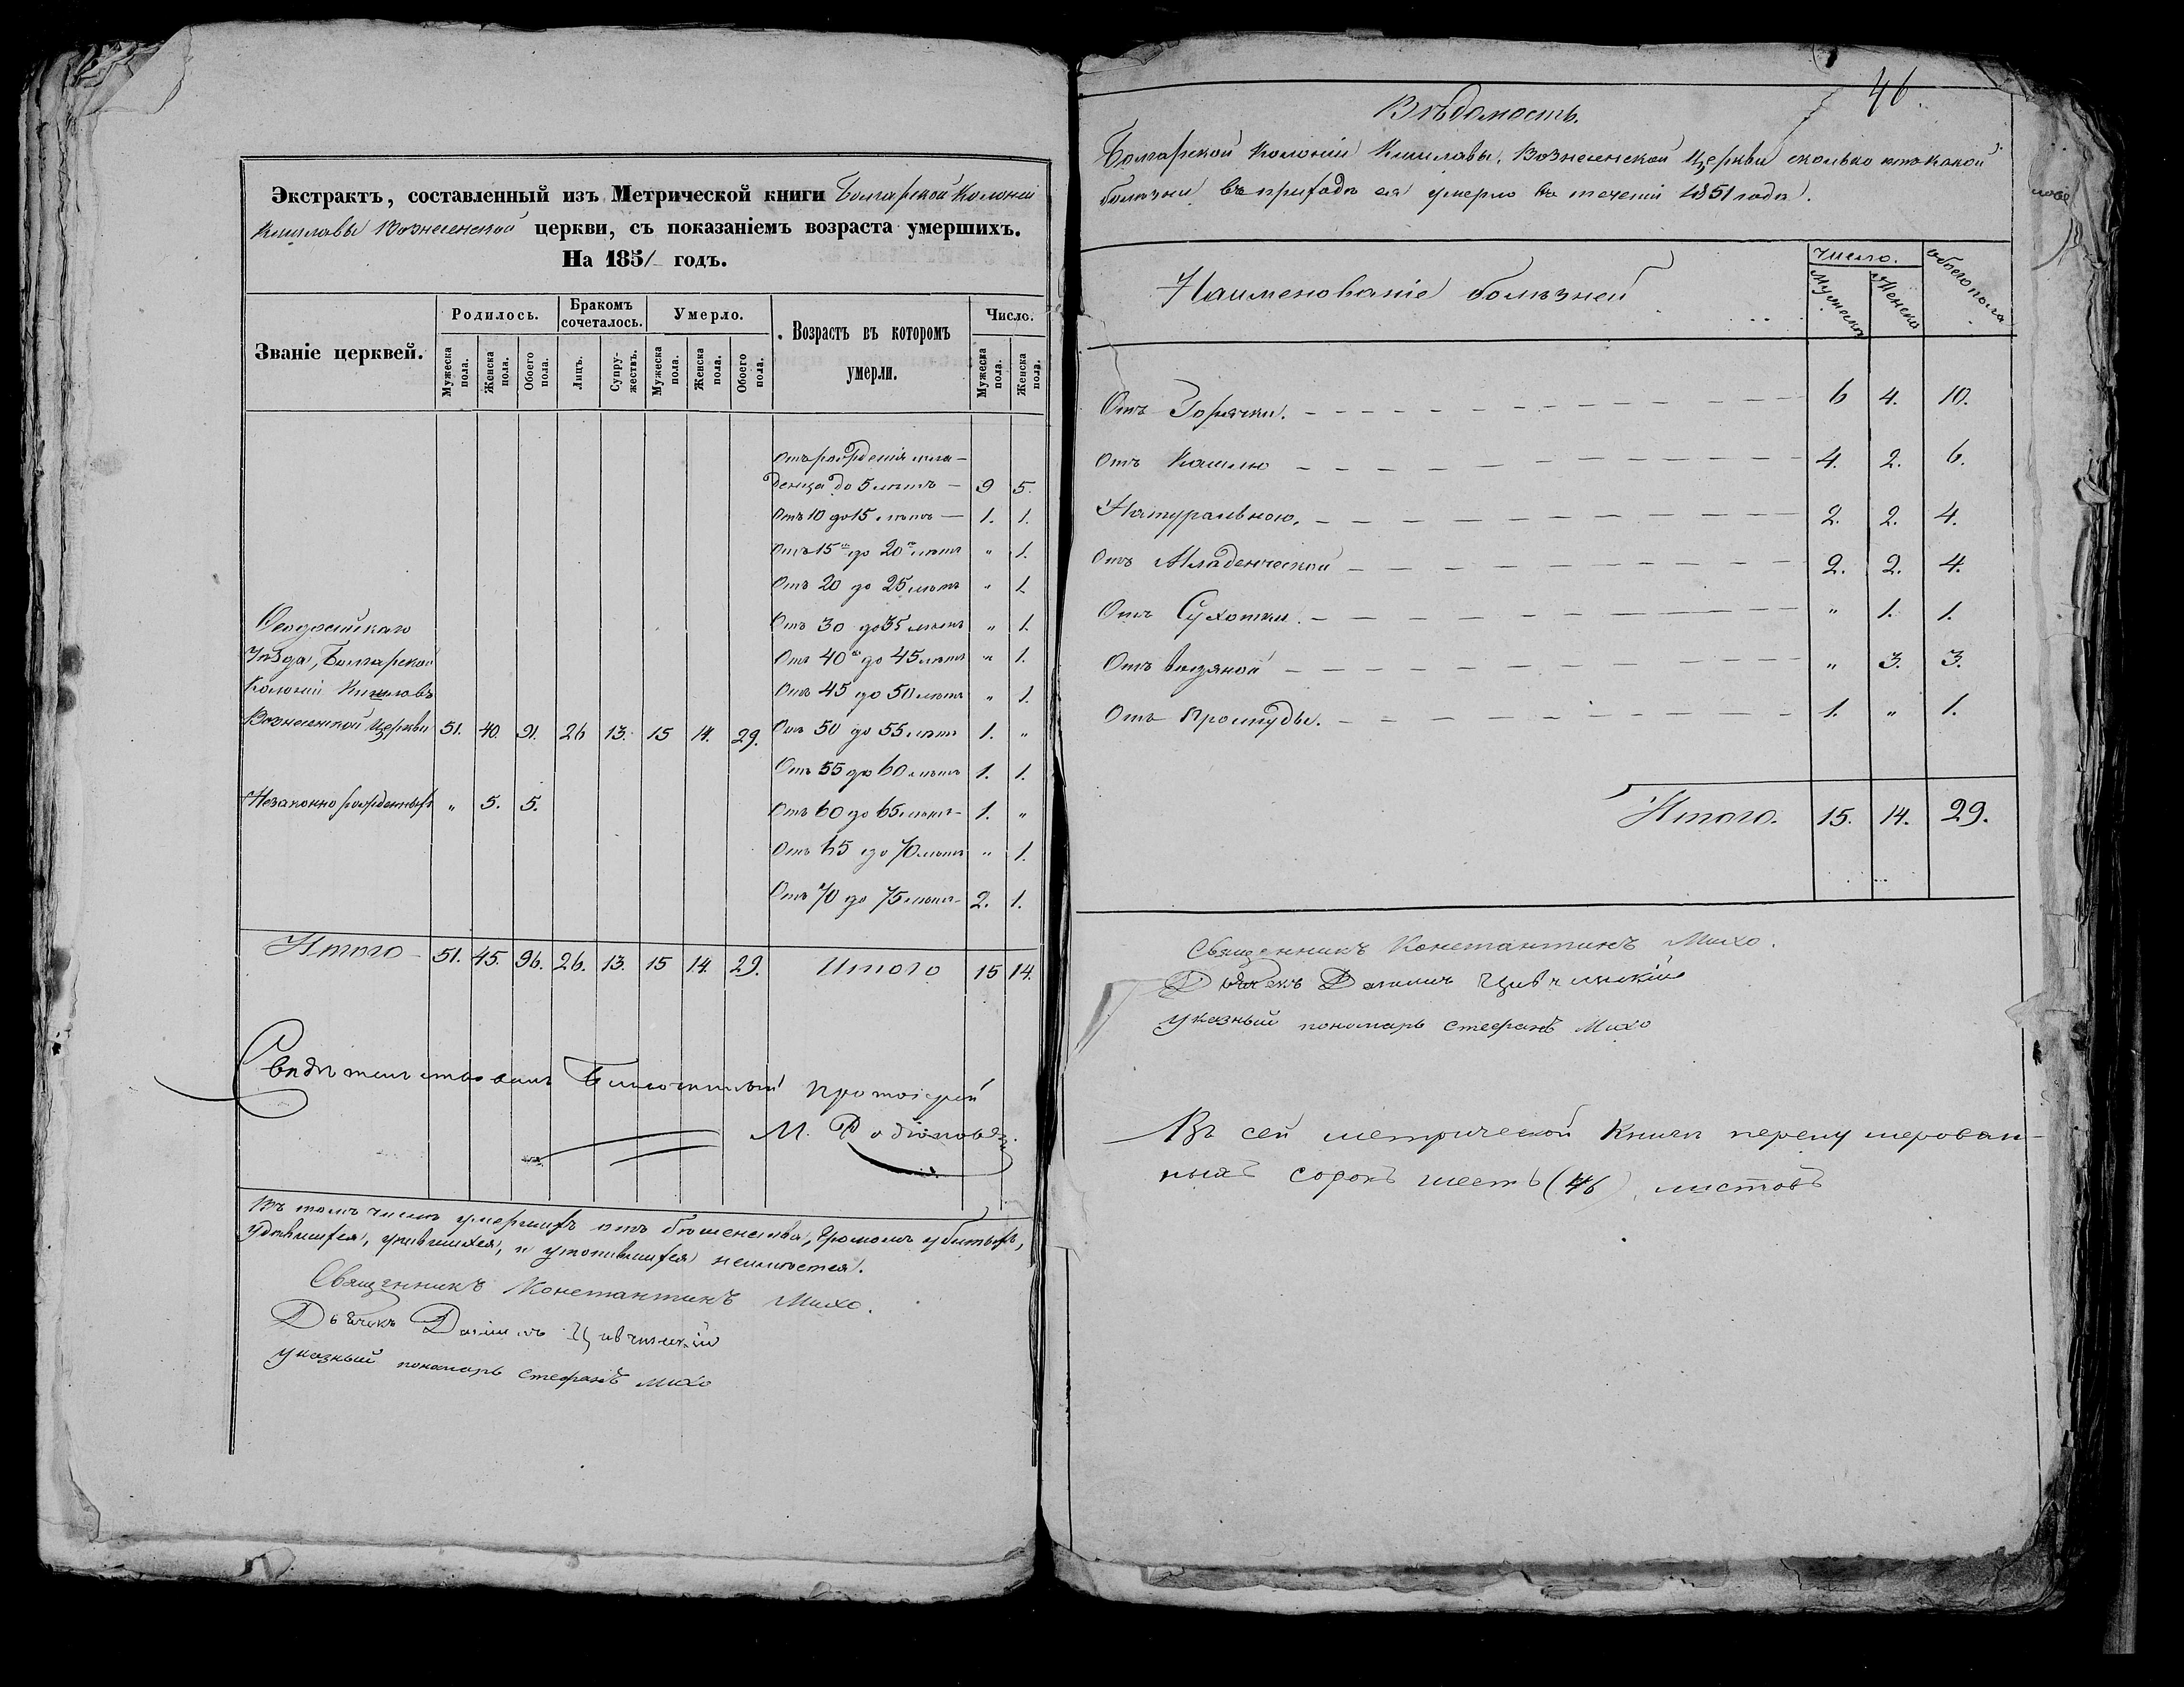 Экстрактъ, составленный изъ Метрической книги Болгарской Колоніи
Кишлавы Вознесенской церкви, съ показаніемъ возраста умершихъ.
На 1851 годъ.
Званіе церквей.
Родилось.
Бракомъ сочеталось.
Умерло.
Возрастъ въ которомъ умерли.
Число.
Мужеска пола.
Женска пола.
Обоего пола.
Лицъ.
Супружествъ.
Мужеска пола.
Женска пола.
Обоего пола.
Мужеска пола.
Женска пола.
Отъ рожденія мла-
денца до 5 лѣтъ — 9 5.
Отъ 10 до 15 лѣтъ — 1. 1.
Отъ 15 до 20 лѣтъ " 1.
Отъ 20 до 25 лѣтъ " 1.
Феодосійскаго
Отъ 30 до 35 лѣтъ " 1.
Уѣзда, Болгарской
Отъ 40 до 45 лѣтъ " 1.
Колоніи Кишлавъ
Отъ 45 до 50 лѣтъ " 1.
Вознесенской Церкви 51. 40. 91. 26 13. 15 14. 29.
Отъ 50 до 55 лѣтъ 1. "
Отъ 55 до 60 лѣтъ 1. 1.
Незаконно рожденныхъ " 5. 5.
Отъ 60 до 65 лѣтъ 1. "
Отъ 65 до 70 лѣтъ " 1.
Отъ 70 до 75 лѣтъ 2. 1.
Итого 51. 45. 96. 26. 13. 15 14. 29. Итого 15 14.
Свидѣтельствовалъ Благочинный Протоіерей
М. Родіоновъ
Въ томъ числѣ умершихъ отъ бѣшенства, Громомъ убитыхъ,
Удавившихся, упившихся, и утопившихся неимѣется.
Священникъ Константинъ Михо.
Дьячекъ Даніилъ
указный пономарь стефанъ михо
46.
Вѣдомость.
Болгарской Колоніи Кишлавы, Вознесенской Церкви сколько отъ какой
болѣзни въ приходѣ ея умерло въ теченіи 1851 года.
Наименованіе болѣзней
Число.
Мужеска
Женска
обоего пола
Отъ Горячки. 6 4. 10.
Отъ Кашлю 4. 2. 6.
Натуральною. 2. 2. 4.
Отъ Младенческой 2. 2. 4.
Отъ Сухотки. " 1. 1.
Отъ водяной " 3. 3.
Отъ Простуды. 1. " 1.
Итого. 15. 14. 29.
Священникъ Константинъ Михо.
Дьячекъ Даніилъ
указный пономарь стефанъ Михо
Въ сей метрической Книгѣ перенумерован-
ныхъ сорокъ шесть (46) листовъ